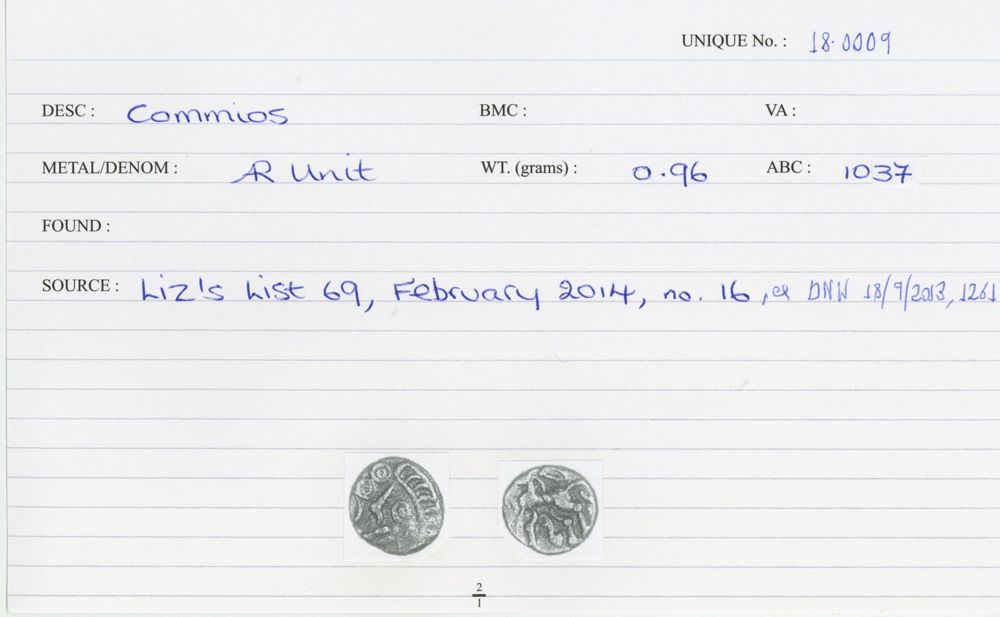 UNIQUE No. : 18.0009
DESC : Commios BMC : VA :
METAL/DENOM : AR Unit WT. (grams) : 0.96 ABC : 1037
FOUND :
SOURCE : Liz's List 69, February 2014, no. 16, ex DNW 18/9/2013, 1261
2
1